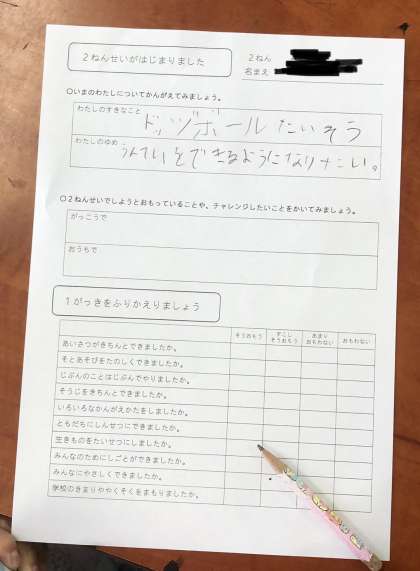 2ねんせいがはじまりました
2ねん
名まえ
○いまのわたしについてかんがえてみましょう。
わたしのすきなこと
ドッヅボールたいそう
わたしのゆめ
うんていをできるようになりたい。
○2ねんせいでしようとおもっていることや、チャレンジしたいことをかいてみましょう。
がっこうで
おうちで
1がっきをふりかえりましょう
そうおもう
すこし
そうおもう
あまり
おもわない
おもわない
あいさつがきちんとできましたか。
そとあそびをたのしくできましたか。
じぶんのことはじぶんでやりましたか。
そうじをきちんとできましたか。
いろいろなかんがえかたをしましたか。
ともだちにしんせつにできましたか。
生きものをたいせつにしましたか。
みんなのためにしごとができましたか。
みんなにやさしくできましたか。
学校のきまりややくそくをまもりましたか。